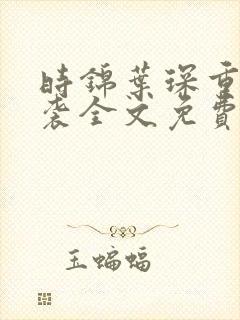 時錦葉琛重
袭全文免費
玉蝙蝠